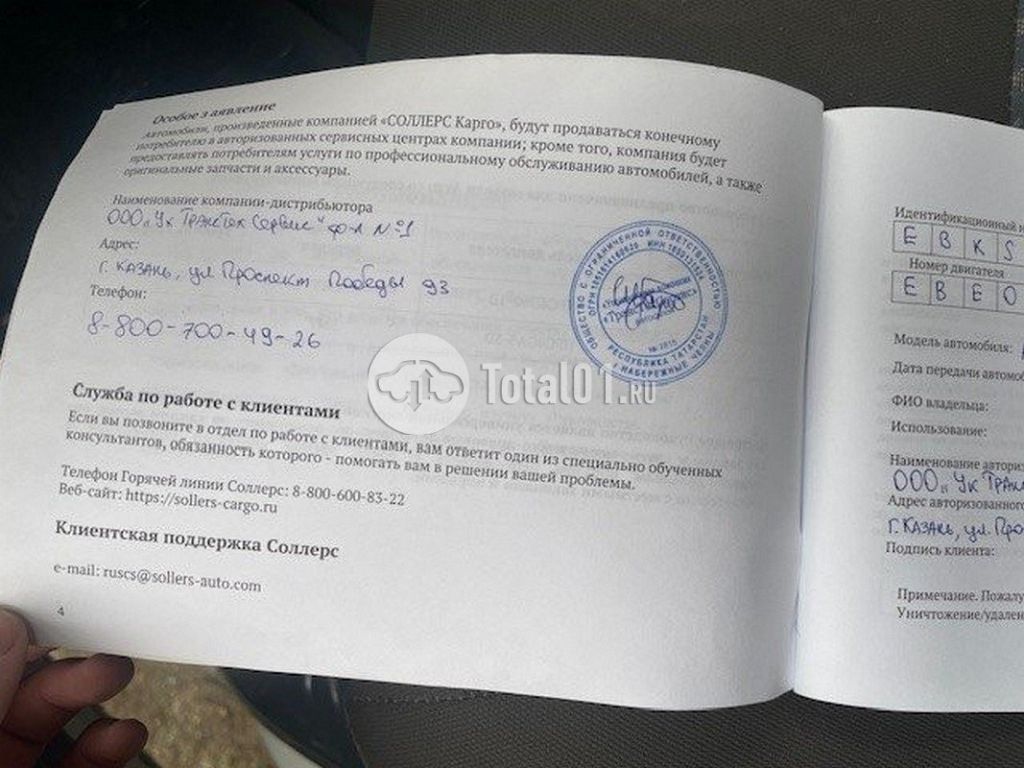 Особое з аявление
Автомобили, произведенные компанией «СОЛЛЕРС Карго», будут продаваться конечному
потребителю в авторизованных сервисных центрах компании; кроме того, компания будет
предоставлять потребителям услуги по профессиональному обслуживанию автомобилей, а также
оригинальные запчасти и аксессуары.
Наименование компании-дистрибьютора
ООО „УК ТракТек Сервис" ф-л №1
Адрес:
г. Казань, ул Проспект Победы 93
Телефон:
8-800-700-49-26
ОБЩЕСТВО С ОГРАНИ�ченной ОТВЕТСТВЕННОСТЬЮ
РЕСПУБЛИКА ТАТАРСТАН
Г НАБЕРЕЖНЫЕ ЧЕЛНЫ
Total01.RU
Служба по работе с клиентами
Если вы позвоните в отдел по работе с клиентами, вам ответит один из специально обученных
консультантов, обязанность которого - помогать вам в решении вашей проблемы.
Телефон Горячей линии Соллерс: 8-800-600-83-22
Веб-сайт: https://sollers-cargo.ru
Клиентская поддержка Соллерс
e-mail: ruscs@sollers-auto.com
4
Идентификационный н
E B K S
Номер двигателя
E B E 0
Модель автомобиля:
Дата передачи автомоб
ФИО владельца:
Использование:
Наименование авториз
ООО „УК Трак
Адрес авторизованного
г. Казань, ул. Про
Подпись клиента:
Примечание. Пожалу
Уничтожение/удален